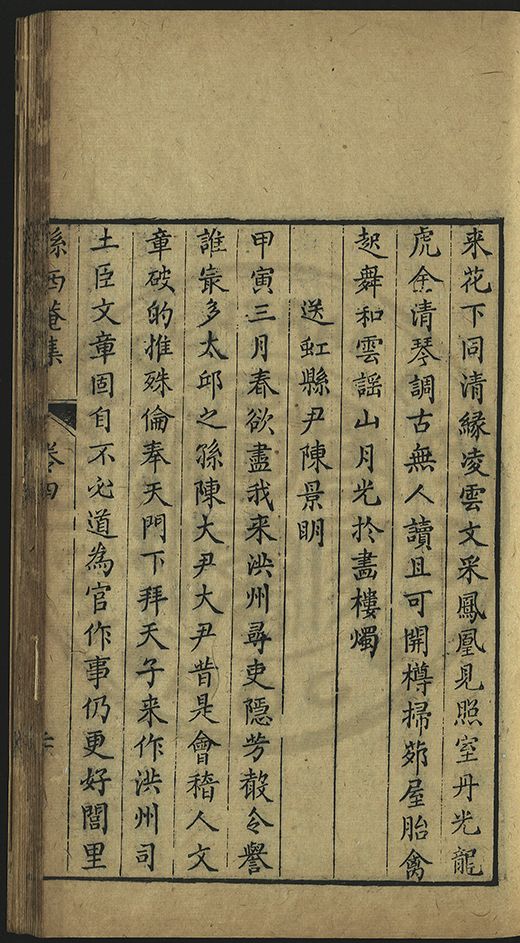 来花下同清緣凌雲文采鳳凰見照室丹光龍
虎金清琴調古無人讀且可開樽掃茆屋胎禽
起舞和雲謡山月光於畫樓燭
送虹縣尹陳景明
甲寅三月春欲盡我来洪州尋吏隱芳聲令譽
誰寂多太邱之孫陳大尹大尹昔是會稽人文
章破的推殊倫奉天門下拜天子来作洪州司
土臣文章固自不必道為官作事仍更好閭里
孫西菴集
卷四